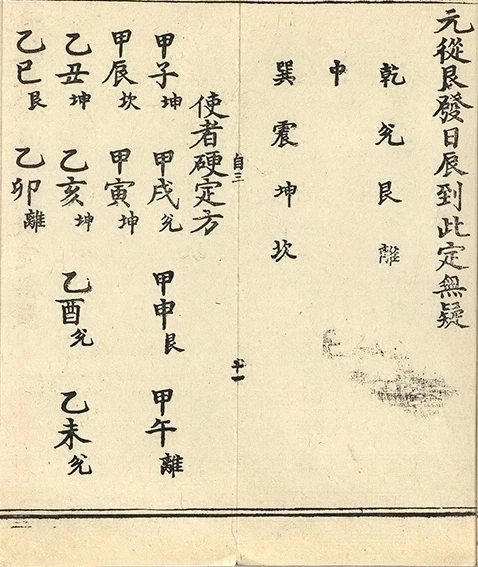 元從艮發日辰到此定無疑
乾兌艮離
中
巽震坤坎
自三
十一
使者硬定方
甲子坤 甲戌兌 甲申艮 甲午離
甲辰坎 甲寅坤
乙丑坤 乙亥坤 乙酉兌 乙未兌
乙巳艮 乙卯離